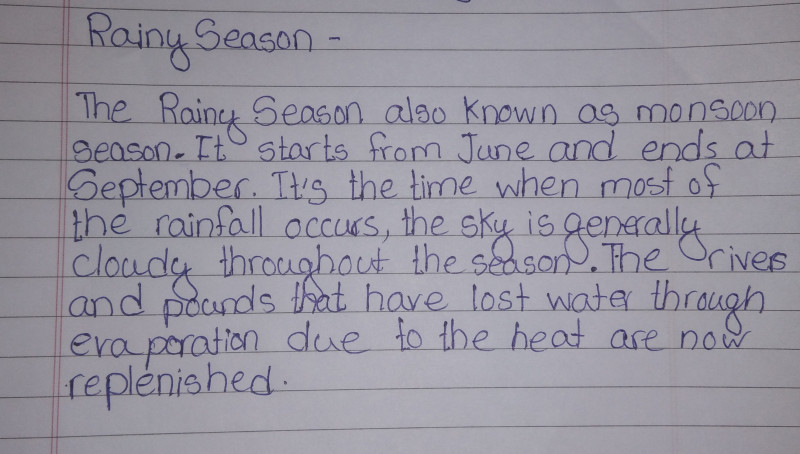 Rainy Season -
The Rainy Season also known as monsoon
season. It starts from June and ends at
September. It's the time when most of
the rainfall occurs, the sky is generally
cloudy throughout the season. The rivers
and pounds that have lost water through
evaporation due to the heat are now
replenished.